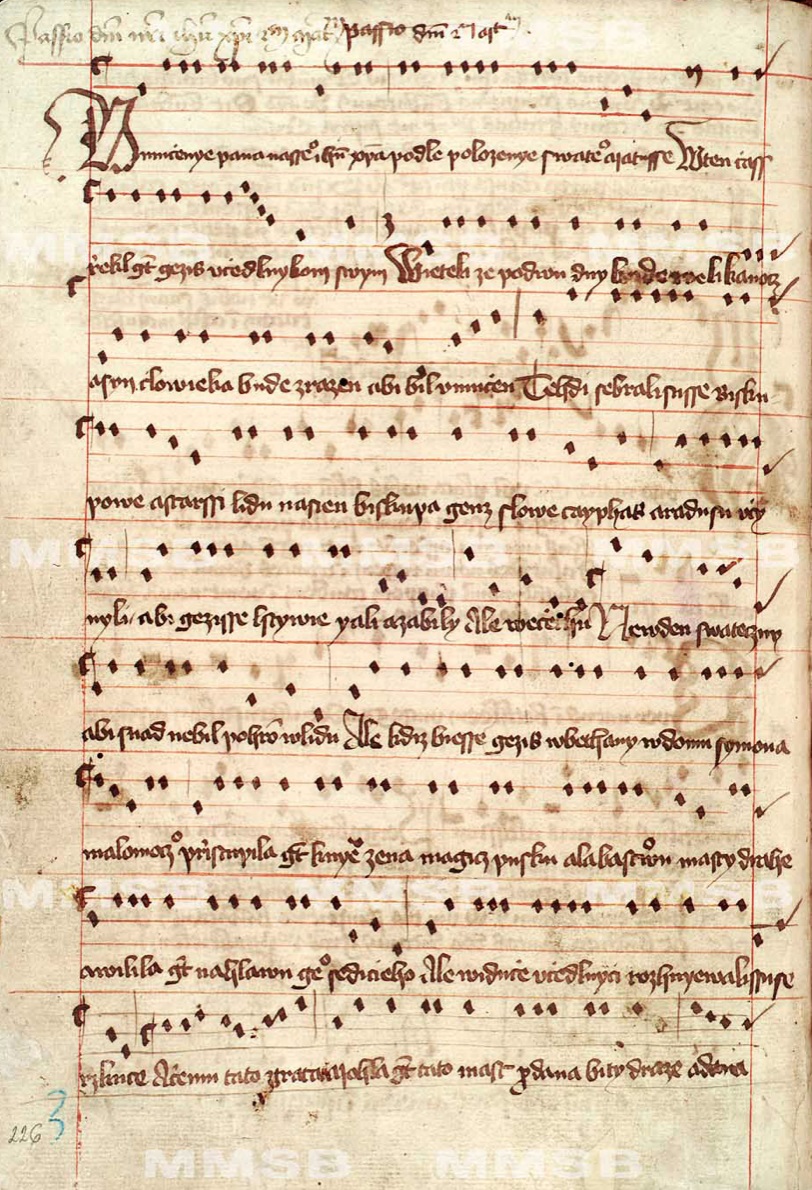 Passio dni nri ihu xpi passio dni
Vmucenye pana nasseo ihu xpa podle polozenye swateo matusse Wten czass
rzekl gt gezis vcedlnykom swym Wieteli ze podwu dny bude welikanocz
asyn clowieka bude zrazen abi bil vmucen Tehdi sebrali susse Bisku
powe astarssi lidu nacien biskupa genz slowe cayphas aradusu vczy
nyli abi gezisse lstywie yali azabily Ale wece Newden swateczny
abi snad nebil wlidu Ale kdiz biesse gezis wbethany wdomu symona
malomoczo przistupila gt knye zena magicz pusku alabastrowu masty drahe
awilila gt nahlawu geo sediciho Ale widuce vcedlnyci rozhnyewali susse
rzkuce Aczemu tato gt tato mast pdana biti draze adana
226
3
MMSB